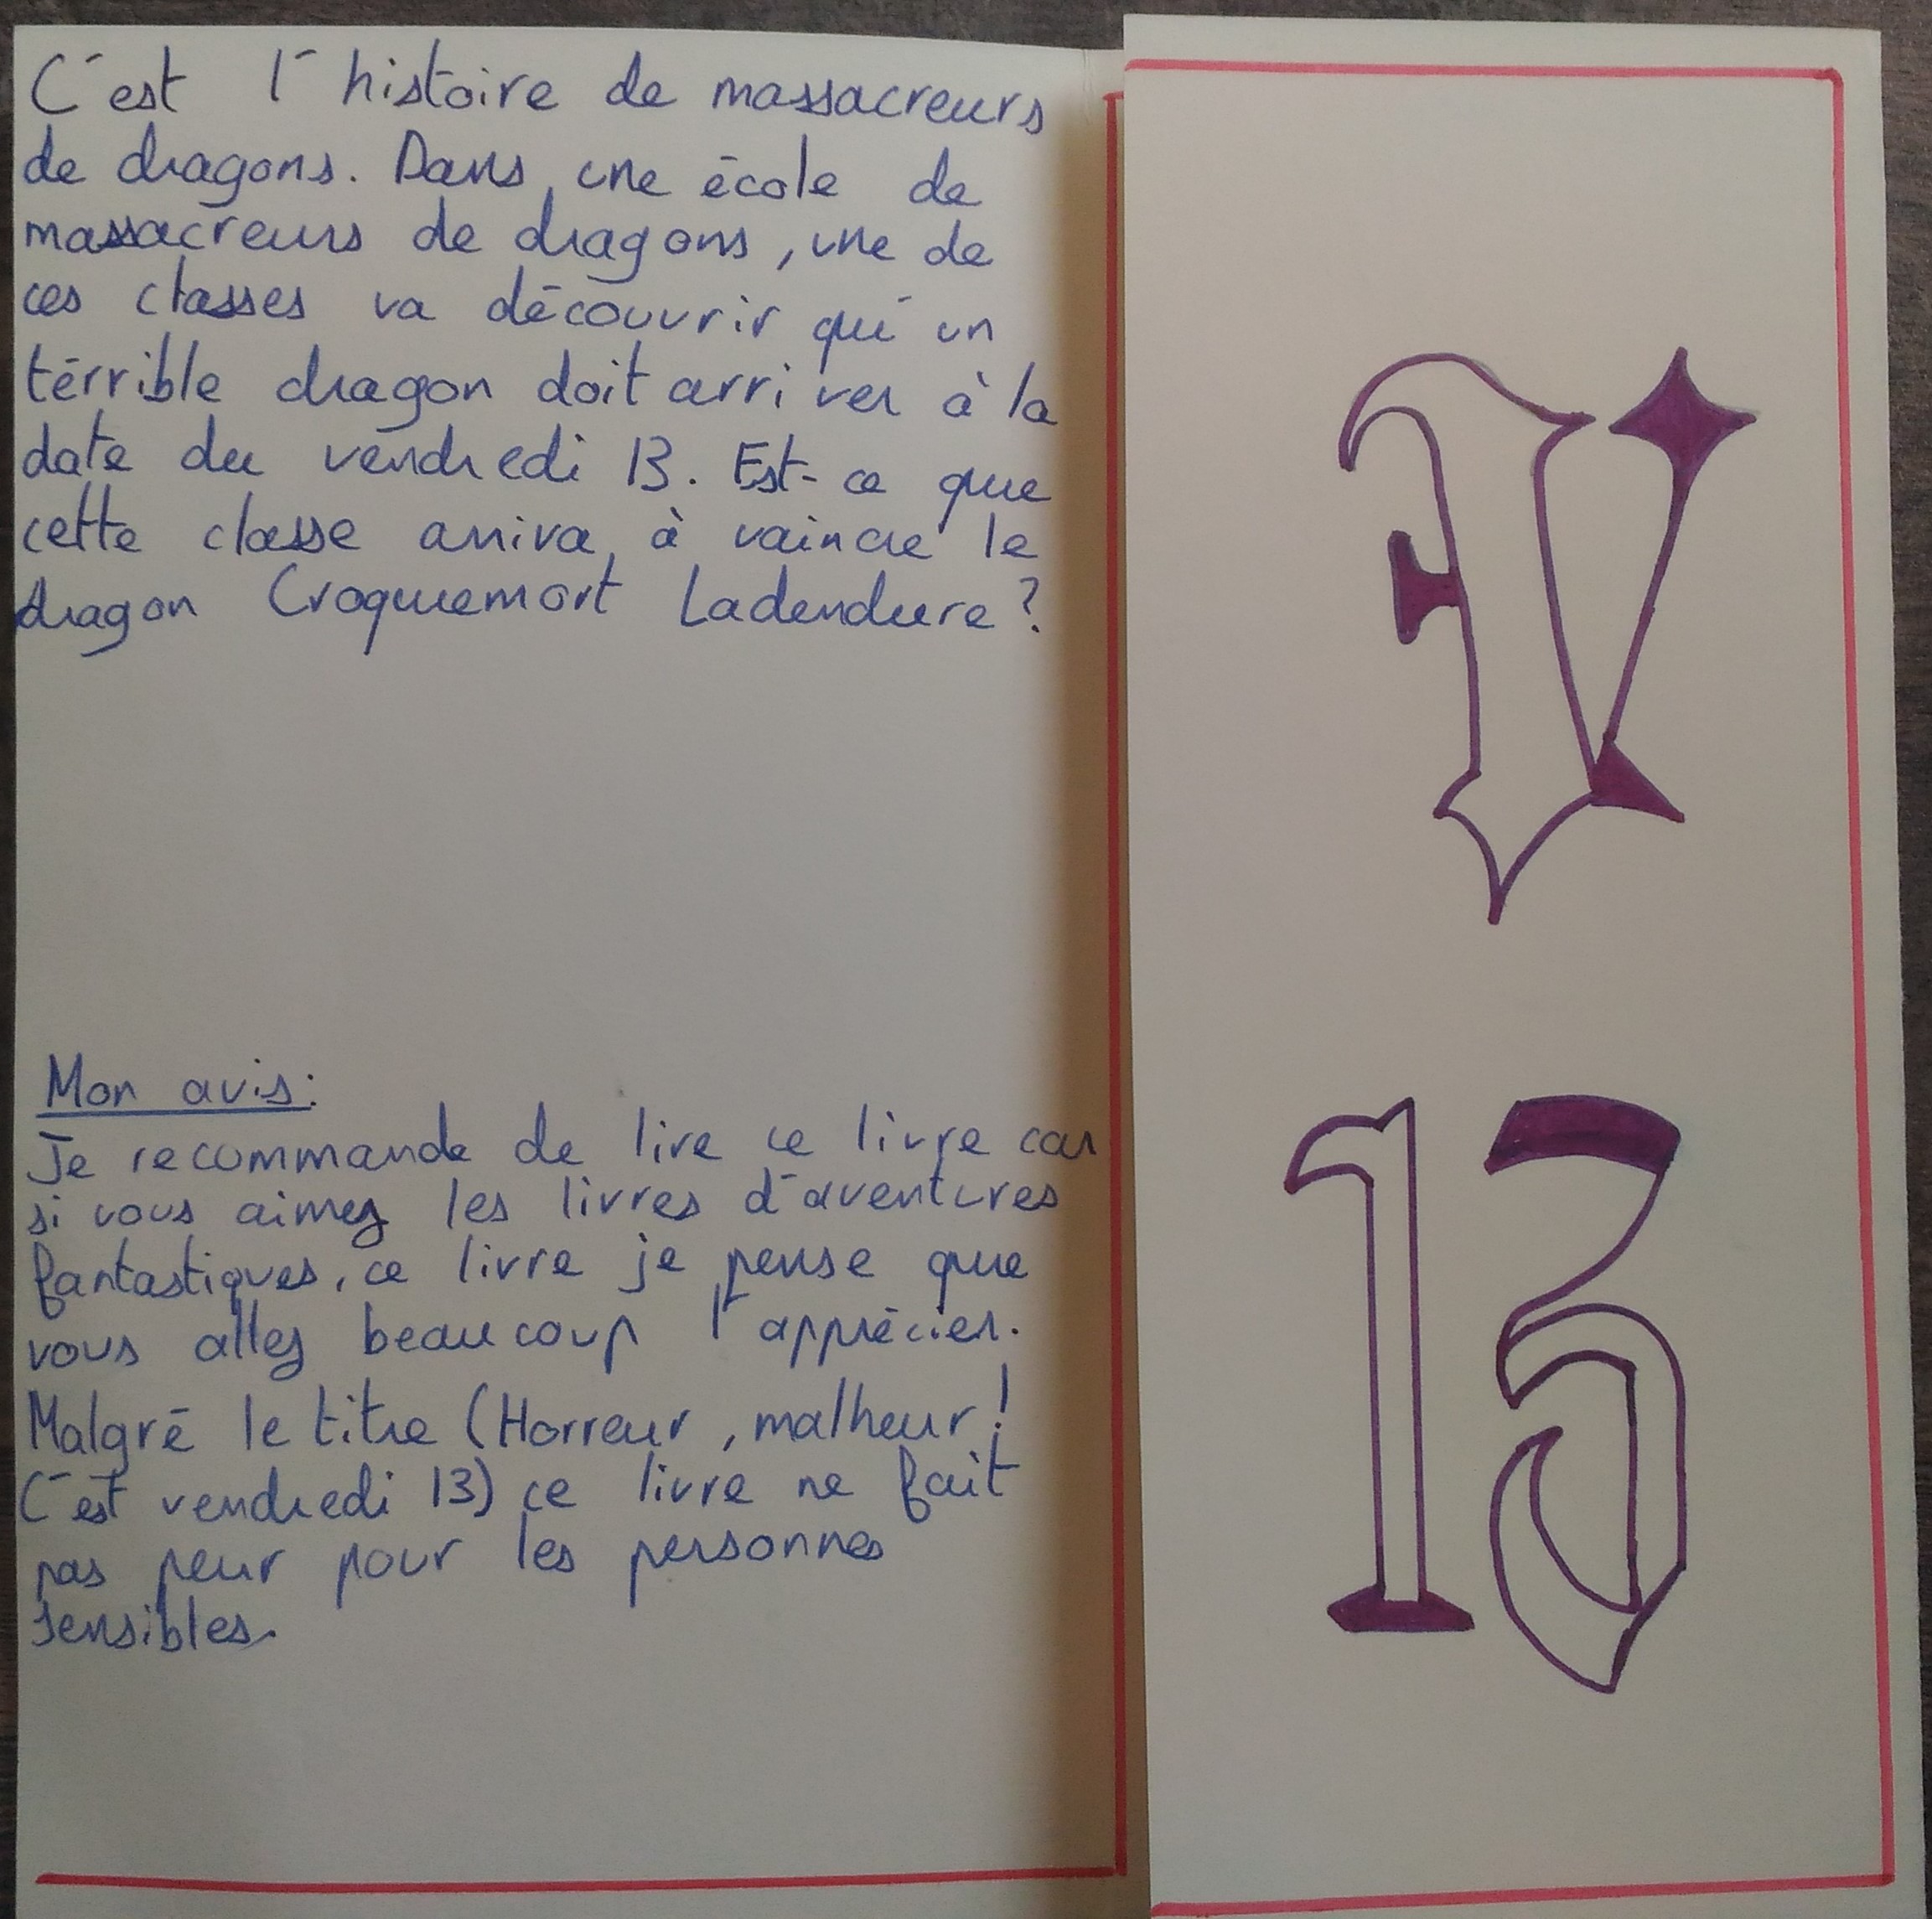 C'est l'histoire de massacreurs
de dragons. Dans une école de
massacreurs de dragons, une de
ces classes va découvrir qu'un
térrible dragon doit arriver à la
date du vendredi 13. Est-ce que
cette classe ariva à vaincre le
dragon Croquemort Ladendure ?
Mon avis:
Je recommande de lire ce livre car
si vous aimez les livres d'aventures
fantastiques, ce livre je pense que
vous allez beaucoup l'apprécier.
Malgré le titre (Horreur, malheur!
C'est vendredi 13) ce livre ne fait
pas peur pour les personnes
sensibles.
V
13